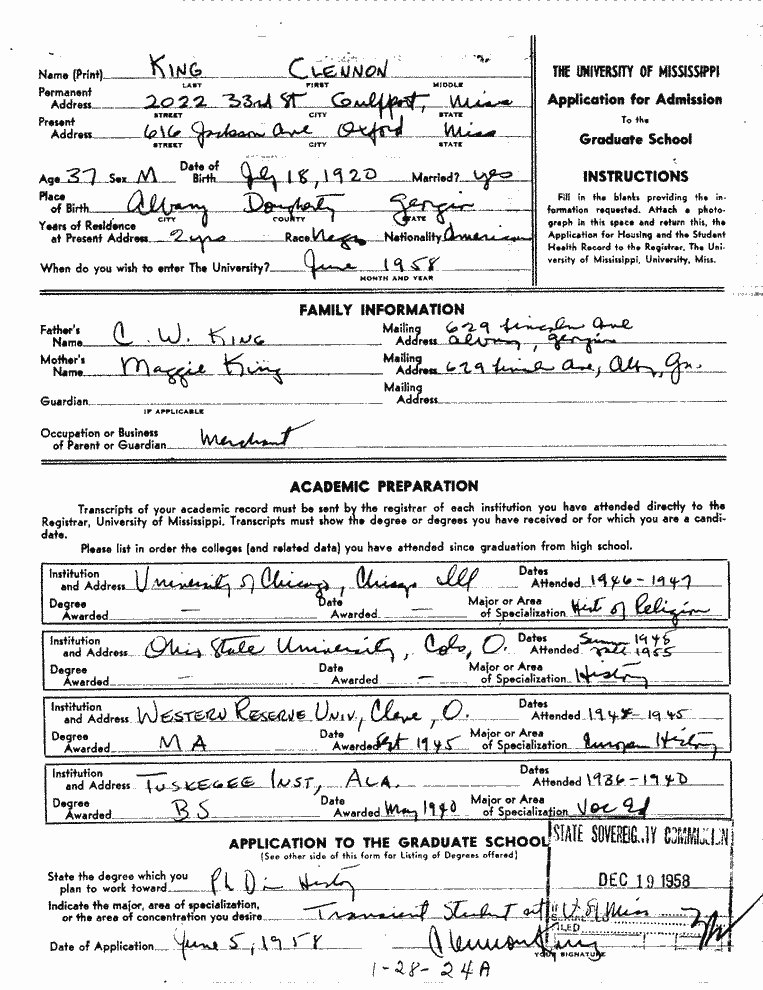 Name (Print) KING CLENNON
LAST FIRST MIDDLE
Permanent
Address 2022 33rd St Gulfport, Miss
STREET CITY STATE
Present
Address 616 Jackson Ave Oxford Miss
STREET CITY STATE
Age 37 Sex M Date of Birth July 18, 1920 Married? yes
Place
of Birth Albany Dougherty Georgia
CITY COUNTY STATE
Years of Residence
at Present Address 2 yrs Race Negro Nationality American
When do you wish to enter The University? June 1958
MONTH AND YEAR
THE UNIVERSITY OF MISSISSIPPI
Application for Admission
To the
Graduate School
INSTRUCTIONS
Fill in the blanks providing the in-
formation requested. Attach a photo-
graph in this space and return this, the
Application for Housing and the Student
Health Record to the Registrar, The Uni-
versity of Mississippi, University, Miss.
FAMILY INFORMATION
Father's
Name C. W. KING Mailing Address 629 Lincoln Ave
Albany, Georgia
Mother's
Name Maggie King Mailing Address 629 Lincoln Ave, Alby, Ga.
Guardian Mailing Address
IF APPLICABLE
Occupation or Business
of Parent or Guardian Merchant
ACADEMIC PREPARATION
Transcripts of your academic record must be sent by the registrar of each institution you have attended directly to the
Registrar, University of Mississippi. Transcripts must show the degree or degrees you have received or for which you are a candi-
date.
Please list in order the colleges (and related data) you have attended since graduation from high school.
Institution
and Address University of Chicago, Chicago Ill Dates Attended 1946-1947
Degree
Awarded — Date Awarded — Major or Area of Specialization Hist of Religion
Institution
and Address Ohio State University, Cols, O. Dates Attended Summer 1948
Fall 1955
Degree
Awarded — Date Awarded — Major or Area of Specialization History
Institution
and Address WESTERN RESERVE UNIV, Cleve, O. Dates Attended 1944-1945
Degree
Awarded M A Date Awarded Sept 1945 Major or Area of Specialization European History
Institution
and Address TUSKEGEE INST, ALA. Dates Attended 1936-1940
Degree
Awarded B S Date Awarded May 1940 Major or Area of Specialization Voc Ed
APPLICATION TO THE GRADUATE SCHOOL
(See other side of this form for Listing of Degrees offered)
STATE SOVEREIGNTY COMMISSION
DEC 19 1958
FILED
State the degree which you
plan to work toward Ph D in History
Indicate the major, area of specialization,
or the area of concentration you desire Transient Student at U of Miss
Date of Application June 5, 1958 Clennon King
YOUR SIGNATURE
1-28-24A